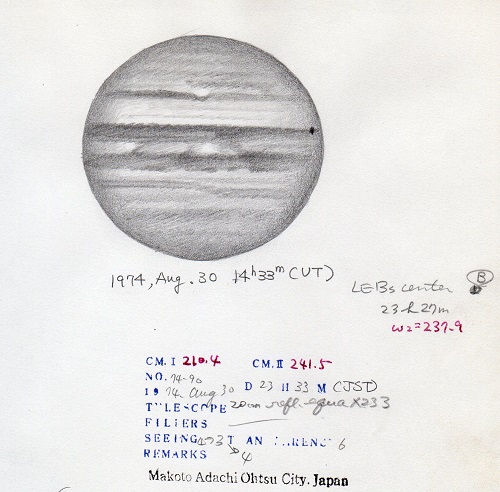 1974, Aug. 30 14h33m (UT)
B
LEBs center
23h27m
ω2=237.9
CM.I 210.4 CM.II 241.5
NO. 74-90
1974 Aug 30 D 23 H 33 M (JST)
TELESCOPE 20cm refl. equa X233
FILTERS
SEEING 3 6
4
REMARKS
Makoto Adachi Ohtsu City. Japan